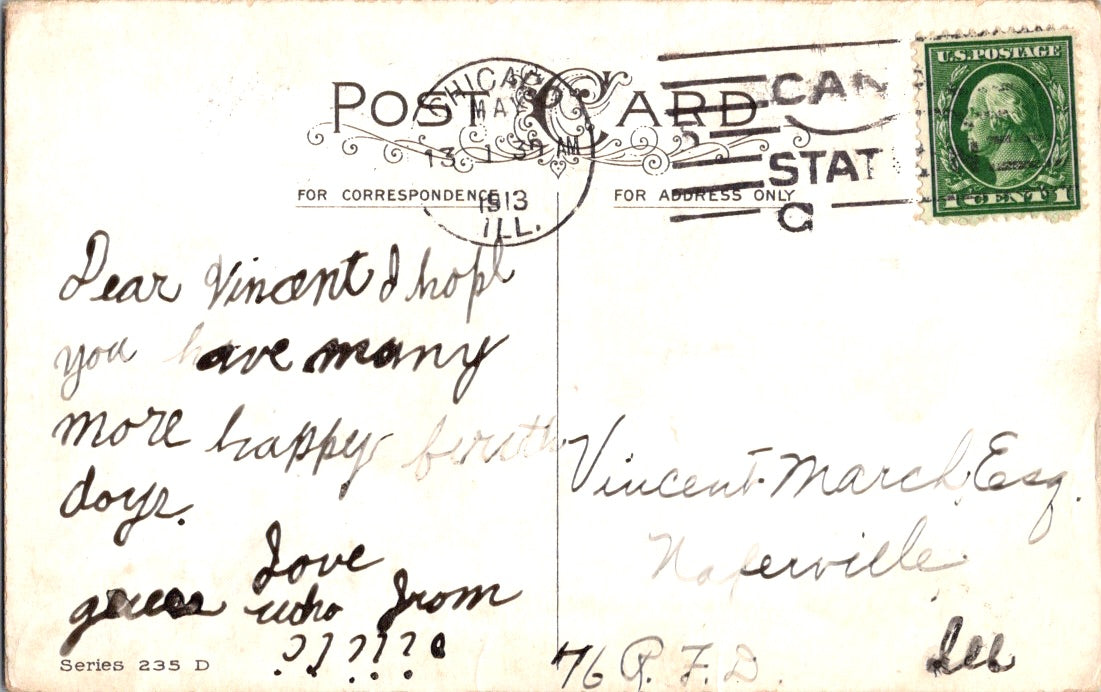 POST CARD
CHICAGO
MAY
13 1 30 AM
1913
ILL.
CAN
STAT
C
U.S. POSTAGE
1 CENT 1
FOR CORRESPONDENCE
FOR ADDRESS ONLY
Dear Vincent I hope
you have many
more happy birth
days.
Love
guess who from
??????
Vincent March Esq.
Naperville
Ill
76 R. F. D.
Series 235 D